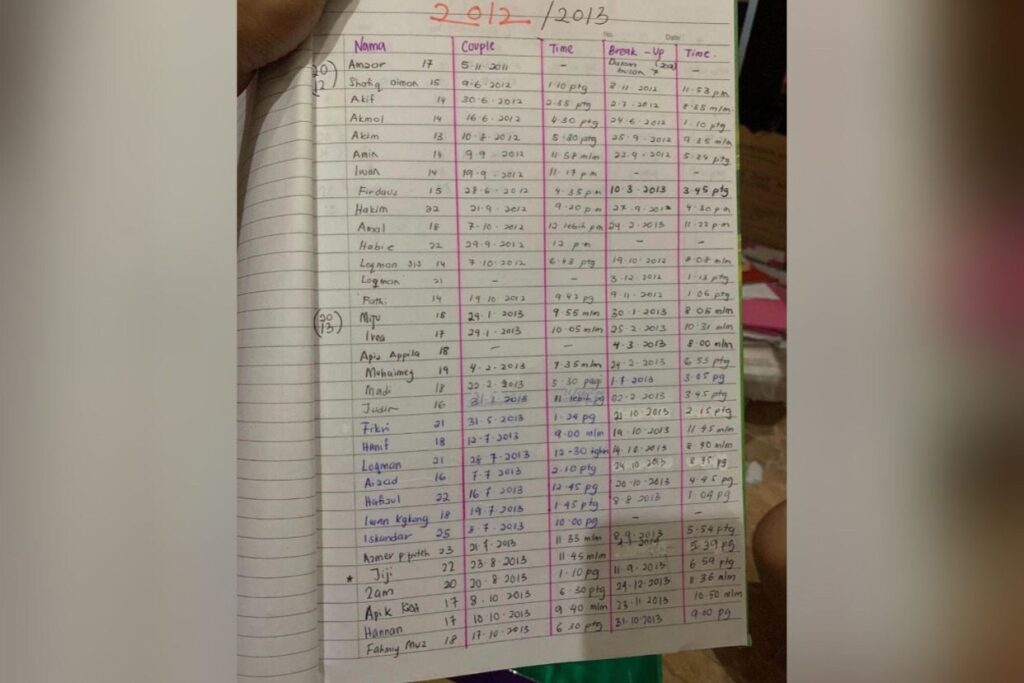 2012 / 2013
No. Date
Nama Couple Time Break - Up Time.
20 12 Amzar 17 5.11.2011 - Dalam bulan 7 -
Shafiq aiman 15 9.6.2012 1.10 ptg 8.11.2012 11.53 pm
Akif 14 30.6.2012 2.55 ptg 2.7.2012 8.55 mlm.
Akmal 14 16.6.2012 4.30 ptg 24.6.2012 1.10 ptg
Akim 13 10.8.2012 5.30 ptg 25.9.2012 9.35 mlm
Amin 14 9.9.2012 11.58 mlm 22.9.2012 5.24 ptg
Iwan 14 19.9.2012 11.17 pm - -
Firdauz 15 28.6.2012 4.35 pm 10.3.2013 3.45 ptg
Hakim 22 21.9.2012 9.20 pm 27.9.2012 4.30 pm
Amal 18 7.10.2012 12 lebih pm 24.2.2013 11.22 pm
Habie 22 29.9.2012 12 pm - -
Loqman 14 7.10.2012 6.43 ptg 19.10.2012 8.08 mlm
Loqman 21 - - 3.12.2012 1.13 ptg
Fathi 14 19.10.2012 9.42 pg 9.11.2012 1.06 ptg
20 13 Miju 18 24.1.2013 9.55 mlm 30.1.2013 8.05 mlm
17 29.1.2013 10.05 mlm 25.2.2013 10.31 mlm
Apis Appila 18 - - 4.3.2013 8.00 mlm
Muhaimey 19 4.2.2013 7.35 mlm 24.2.2013 6.53 ptg
Madi 18 22.2.2013 5.30 pagi 1.7.2013 3.05 pg
Judin 16 2013 11 lebih pg 02.2.2013 3.45 ptg
Fikri 21 31.5.2013 1.24 pg 21.10.2013 2.15 ptg
Hanif 18 12.7.2013 9.00 mlm 19.10.2013 11.45 mlm
Loqman 21 28.7.2013 12.30 tghri 14.10.2013 8.40 mlm
Aizad 16 7.7.2013 2.10 ptg 24.10.2013 8.35 pg
Hafizul 22 16.7.2013 12.45 pg 20.10.2013 4.45 pg
Iwan Kgkong 18 19.7.2013 1.45 ptg 8.8.2013 1.04 pg
Iskandar 25 8.7.2013 10.00 pg - -
Azmer p puteh 23 2013 11.33 mlm 8.9.2013 5.54 ptg
* Jiji 22 23.8.2013 11.45 mlm 5.39 pg
Zam 20 20.8.2013 1.10 pg 11.9.2013 6.59 ptg
Apik Kat 17 8.10.2013 6.30 ptg 24.12.2013 8.36 mlm
Hannan 17 10.10.2013 9.40 mlm 23.11.2013 10.50 mlm
Fahmy Muz 18 17.10.2013 6.30 ptg 31.10.2013 9.00 pg